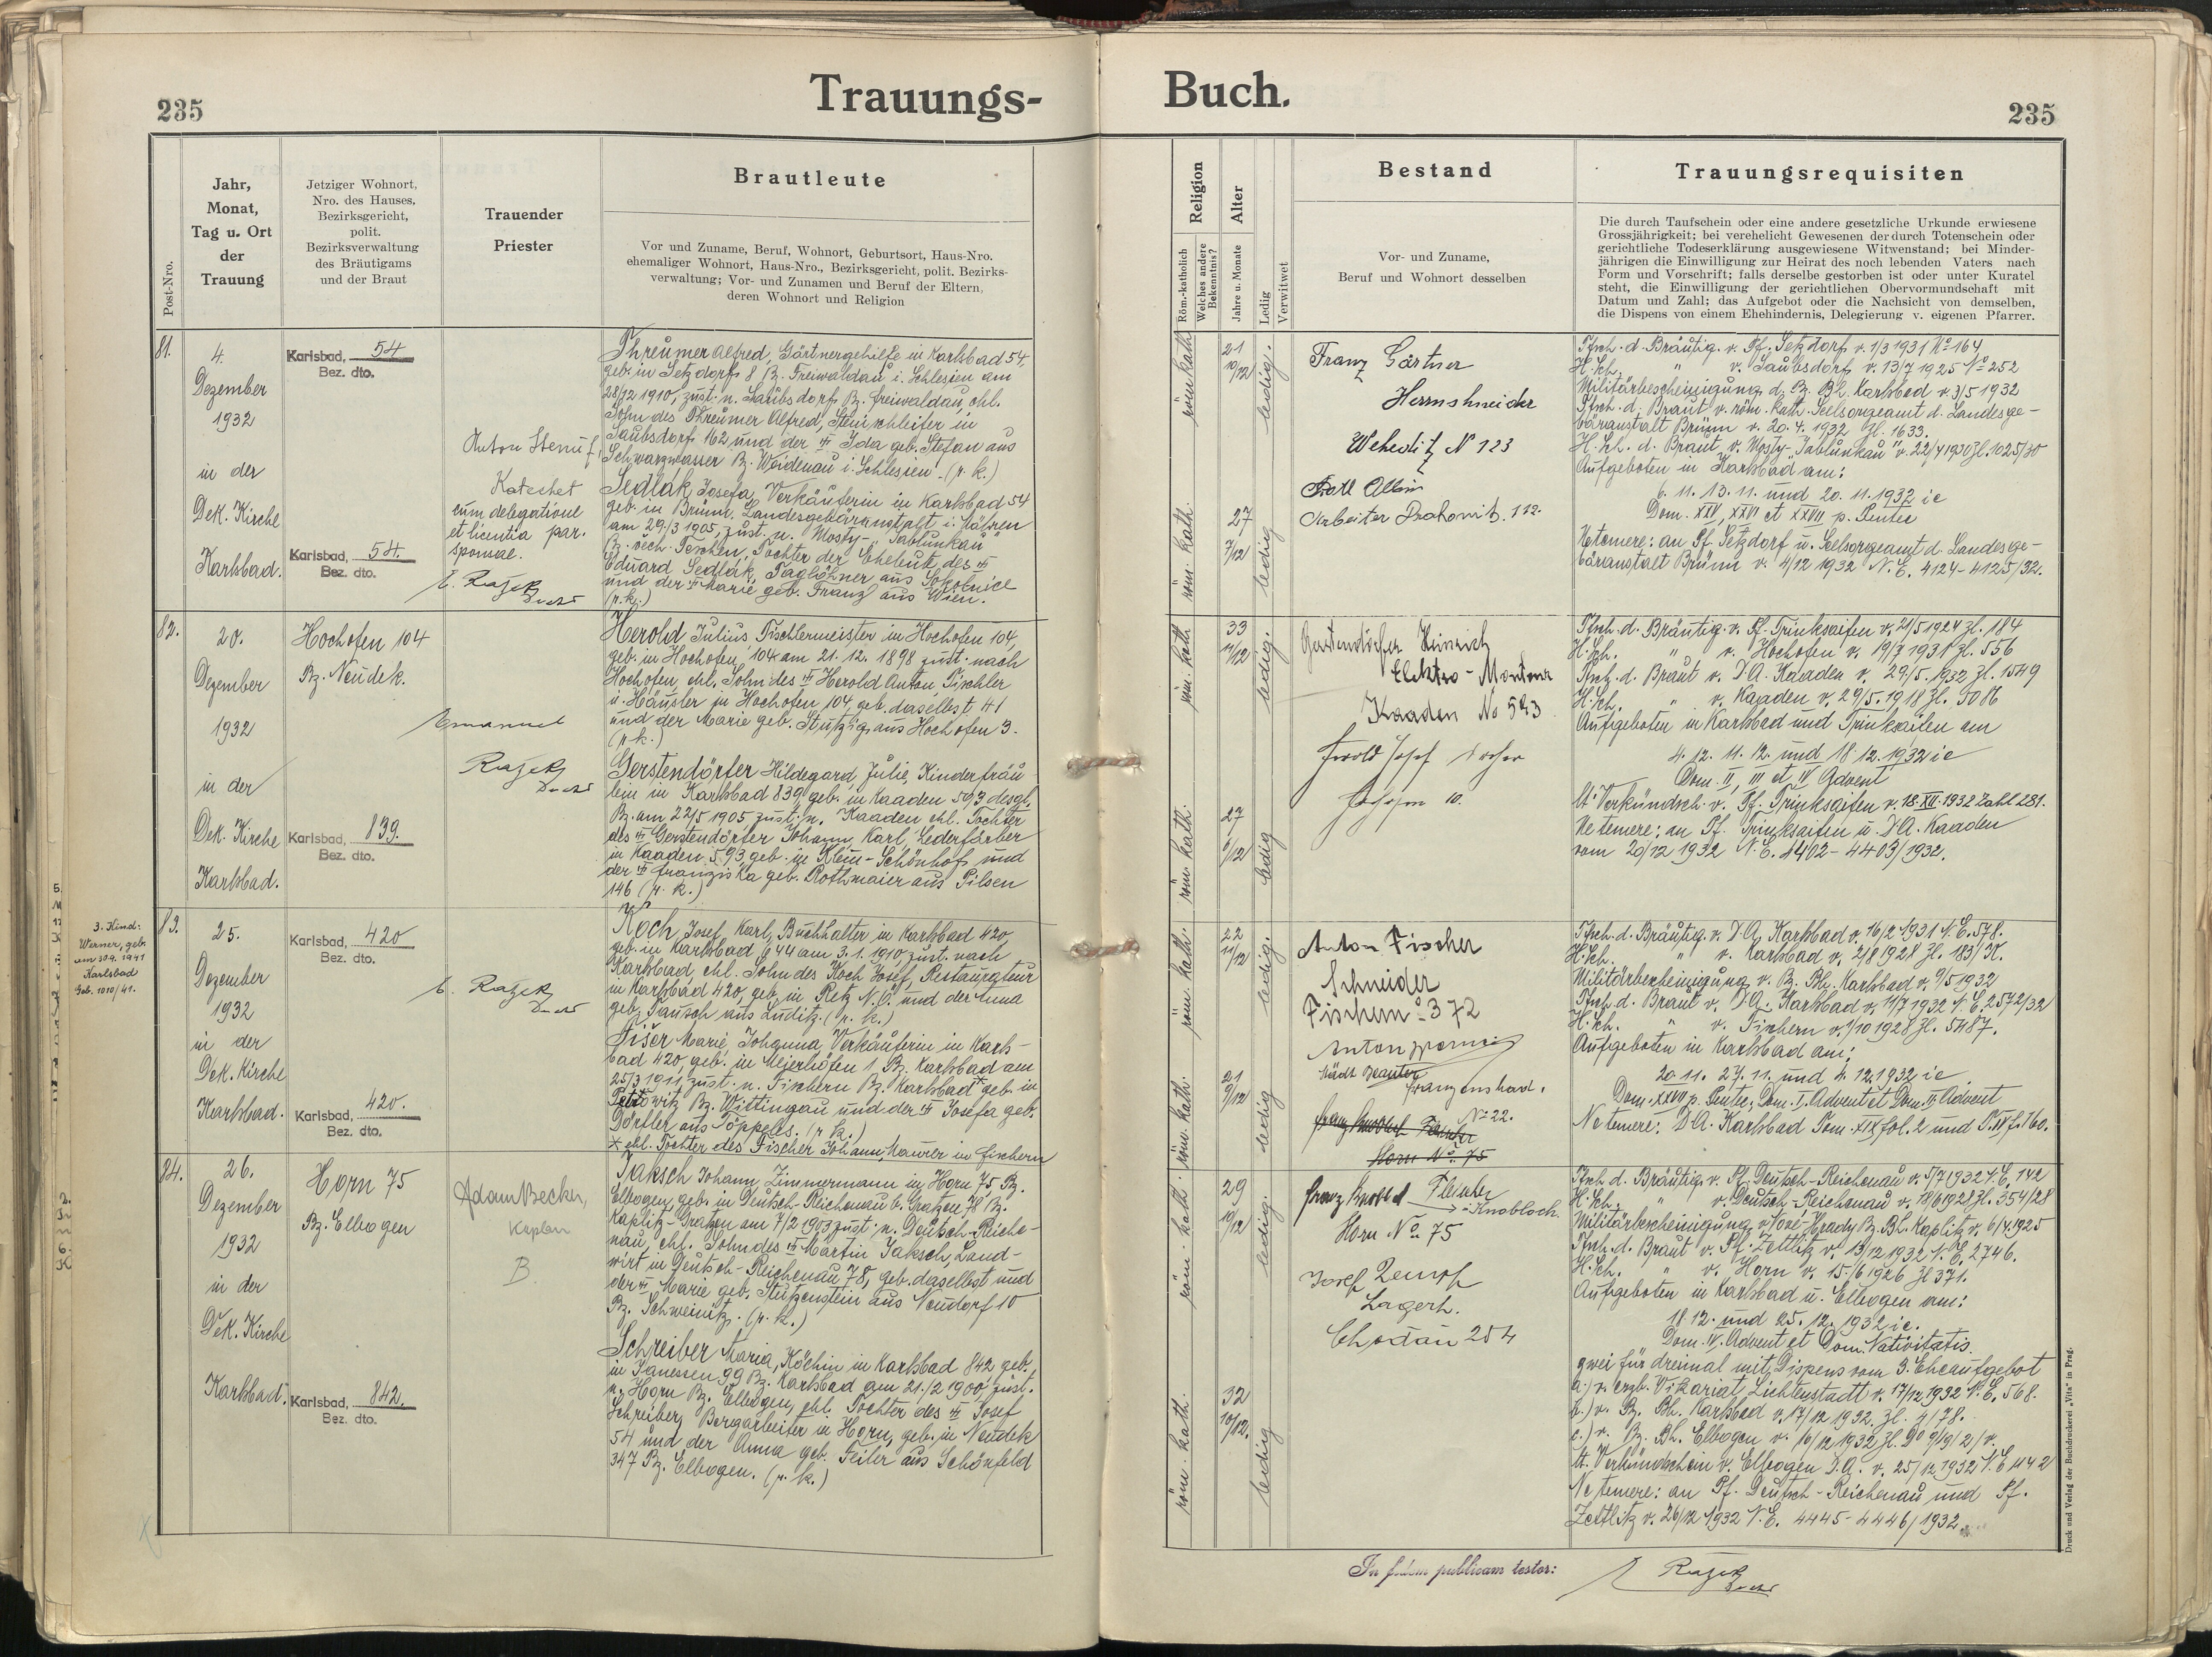 235
Trauungs-
Post-Nro.
Jahr,
Monat,
Tag u. Ort
der
Trauung
Jetziger Wohnort,
Nro. des Hauses,
Bezirksgericht,
polit.
Bezirksverwaltung
des Bräutigams
und der Braut
Trauender
Priester
Brautleute
Vor und Zuname, Beruf, Wohnort, Geburtsort, Haus-Nro.
ehemaliger Wohnort, Haus-Nro., Bezirksgericht, polit. Bezirks-
verwaltung; Vor- und Zunamen und Beruf der Eltern,
deren Wohnort und Religion
81.
4.
Dezember
1932
in der
Dek. Kirche
Karlsbad.
Karlsbad, 54
Bez. dto.
Karlsbad, 54.
Bez. dto.
Anton
Katechet
cum delegatione
et licentia par.
sponsae.
Threumer Alfred, Gärtnergehilfe in Karlsbad 54,
geb. in Setzdorf 8 Bz. Freiwaldau i. Schlesien am
28/12 1910, zust. n. Saubsdorf Bz. Freiwaldau, ehl.
Sohn des Threumer Alfred, Steinschleifer in
Saubsdorf 162 und der Ida geb. Stefan aus
Schwarzwasser Bz. Weidenau i. Schlesien. (r. k.)
Sedlák Josefa, Verkäuferin in Karlsbad 54
geb. in Brünn, Landesgebäranstalt i. Mähren
am 29/3 1905, zust. n. Mosty-"Jablunkau"
Bz. čech. Teschen, Tochter der Eheleute, des
Eduard Sedlák, Taglöhner aus Sokolnice
und der Marie geb. Franz aus Wien.
(r. k.)
82.
20.
Dezember
1932
in der
Dek. Kirche
Karlsbad.
Hochofen 104
Bz. Neudek.
Karlsbad, 839.
Bez. dto.
Emanuel
Herold Julius, Tischlermeister in Hochofen 104,
geb. in Hochofen 104 am 21. 12. 1898 zust. nach
Hochofen, ehl. Sohn des Herold Anton, Tischler
u. Häusler in Hochofen 104 geb. daselbst 41
und der Marie geb. Stutzig aus Hochofen 3.
(r. k.)
Gerstendörfer Hildegard, Julie, Kinderfräu-
lein in Karlsbad 839, geb. in Kaaden 593 desgl.
Bz. am 22/5 1905 zust. n. Kaaden ehl. Tochter
des Gerstendörfer Johann, Karl, Lederfärber
in Kaaden 593 geb. in Klein-Schönhof und
der Franziska geb. Rothmaier aus Pilsen
146 (r. k.)
3. Kind:
Werner, geb.
am 30.9. 1941
Karlsbad
Geb. 1010/41.
83.
25.
Dezember
1932
in der
Dek. Kirche
Karlsbad.
Karlsbad, 420
Bez. dto.
Karlsbad, 420.
Bez. dto.
Koch, Josef, Karl, Buchhalter in Karlsbad 420,
geb. in Karlsbad 644 am 3. 1. 1910, zust. nach
Karlsbad, ehl. Sohn des Koch Josef, Restaurateur
in Karlsbad 420, geb. in Retz N. Ö. und der Anna
geb. Pausch aus Luditz. (r. k.)
Fišer Marie, Johanna, Verkäuferin in Karls-
bad 420, geb. in Meierhöfen 1 Bz. Karlsbad am
25/3 1911, zust. n. Fischern Bz. Karlsbad * geb. in
Bz. Wittingau und der Josefa geb.
Dörfler aus Töppeles. (r. k.)
* ehl. Tochter des Fischer Johann, Maurer in Fischern
84.
26.
Dezember
1932
in der
Dek. Kirche
Karlsbad.
Horn 75
Bz. Elbogen
Karlsbad, 842.
Bez. dto.
Adam Becker,
Kaplan
B.
Jaksch Johann, Zimmermann in Horn 75 Bz.
Elbogen, geb. in Deutsch-Reichenau b. Gratzen 78 Bz.
Kaplitz-Gratzen am 7/2 1903 zust. n. Deutsch-Reiche-
nau, ehl. Sohn des Martin Jaksch, Land-
wirt in Deutsch-Reichenau 78, geb. daselbst und
der Marie geb. Stutzenstein aus Neudorf 10
Bz. Schweinitz. (r. k.)
Schreiber Maria, Köchin in Karlsbad 842 geb.
in Janessen 99 Bz. Karlsbad am 21/2 1900, zust.
n. Horn Bz. Elbogen, ehl. Tochter des Josef
Schreiber, Bergarbeiter in Horn, geb. in Neudek
54 und der Anna geb. Feiler aus Schönfeld
347 Bz. Elbogen. (r. k.)
Buch.
235
Religion
Röm.-katholisch
Welches andere
Bekenntnis?
Alter
Jahre u. Monate
Ledig
Verwitwet
Bestand
Vor- und Zuname,
Beruf und Wohnort desselben
Trauungsrequisiten
Die durch Taufschein oder eine andere gesetzliche Urkunde erwiesene
Grossjährigkeit; bei verehelicht Gewesenen der durch Totenschein oder
gerichtliche Todeserklärung ausgewiesene Witwenstand; bei Minder-
jährigen die Einwilligung zur Heirat des noch lebenden Vaters nach
Form und Vorschrift; falls derselbe gestorben ist oder unter Kuratel
steht, die Einwilligung der gerichtlichen Obervormundschaft mit
Datum und Zahl; das Aufgebot oder die Nachsicht von demselben,
die Dispens von einem Ehehindernis, Delegierung v. eigenen Pfarrer.
röm. kath.
21
10/12
ledig.
röm. kath.
27
7/12
ledig
Franz Gärtner
Herrnshneider
Wehediz N 123
Albin
Arbeiter 112.
Tfsch. d. Bräutig. v. Pf. Setzdorf v. 1/3 1931 No 164
H. Sch. " v. Saubsdorf v. 13/7 1925 No 252
Militärbescheinigung d. Bz. Bh. Karlsbad v. 3/5 1932
Tfsch. d. Braut v. röm. kath. Seelsorgeamt d. Landesge-
bäranstalt Brünn v. 20. 4. 1932 Zl. 1633.
H. Sch. d. Braut v. Mosty-"Jablunkau" v. 22/4 1930 Zl. 1025/30
Aufgeboten in Karlsbad am:
6. 11. 13. 11. und 20. 11. 1932 ie
Dom. XXV, XXVI et XXVII p. Pentec
Netemere: an Pf. Setzdorf u. Seelsorgeamt d. Landesge-
bäranstalt Brünn v. 4/12 1932 N. E. 4124-4125/32.
röm. kath
33
11/12
ledig.
röm. kath.
27
6/12
ledig
Gerstendörfer Heinrich
Elektro-Monteur
Kaaden No 593
Herold Josef
10.
Tfsch. d. Bräutig. v. Pf. Trinksaifen v. 21/5 1924 Zl. 184
H. Sch. " v. Hochofen v. 19/7 1931 Zl. 556
Tfsch. d. Braut v. D. A. Kaaden v. 29/5. 1932 Zl. 1549
H. Sch. " v. Kaaden v. 29/5. 1918 Zl. 5086
Aufgeboten in Karlsbad und Trinksaifen am
4. 12. 11. 12. und 18. 12. 1932 ie
Dom. II, III et IV Advent
lt. Verkündsch. v. Pf. Trinksaifen v. 18. XII. 1932 Zahl 281.
Netemere: an Pf. Trinksaifen u. D. A. Kaaden
vom 20/12 1932 N. E. 4402-4403/1932.
röm. kath.
22
11/12
ledig.
röm. kath.
21
9/12
ledig
Anton Fischer
Schneider
Fischern 372
Anton
Städt. Beamter
Franzensbad.
No 22.
Horn No. 75
Tfsch. d. Bräutig. v. D. A. Karlsbad v. 16/2 1931 N. E. 578.
H. Sch. " v. Karlsbad v. 2/8 1928 Zl. 183/K.
Militärbescheinigung v. Bz. Bh. Karlsbad v. 9/5 1932
Tfsch. d. Braut v. D. A. Karlsbad v. 11/7 1932 N. E. 2572/32
H. Sch. " v. Fischern v. 1/10 1928 Zl. 5487.
Aufgeboten in Karlsbad am:
20. 11. 27. 11. und 4. 12. 1932 ie
Dom. XXVII p. Pentec., Dom. I. Advent et Dom. II. Advent
Netemere: D. A. Karlsbad Tom. XIX fol. 2 und T. XX f. 160.
röm. kath.
29
10/12
ledig.
röm. kath.
32
10/12.
ledig
Franz Fleischer
→ Knobloch
Horn No. 75
Josef
Lagerh.
Chodau 254
Tfsch d. Bräutig. v. Pf. Deutsch-Reichenau v. 5/7 1932 N. E. 142
H. Sch. " v. Deutsch-Reichenau v. 19/6 1928 Zl. 354/28
Militärbescheinigung v. Nové-Hrady Bz. Bh. Kaplitz v. 6/4. 1925
Tfsch. d. Braut v. Pf. Zettlitz v. 13/12 1932 N. E. 2746.
H. Sch. " v. Horn v. 15./6 1926 Zl 371.
Aufgeboten in Karlsbad u. Elbogen am:
18. 12. und 25. 12. 1932 ie.
Dom. IV. Advent et Dom. Nativitatis.
zwei für dreimal mit Dispens vom 3. Eheaufgebot
a.) v. erzb. Vikariat Lichtenstadt v. 17/12 1932 N. E. 568.
b.) v. Bz. Bh. Karlsbad v. 17/12 1932. Zl. 4/78.
c.) v. Bz. Bh. Elbogen v. 16/12 1932 Zl.
lt. Verkündschein v. Elbogen D. A. v. 25/12 1932 N. E 442
Netemere: an Pf. Deutsch-Reichenau und Pf.
Zettlitz v. 26/12 1932 N. E. 4445-4446/1932.
In fidem publicam testor:
Druck und Verlag der Buchdruckerei „Vita" in Prag.